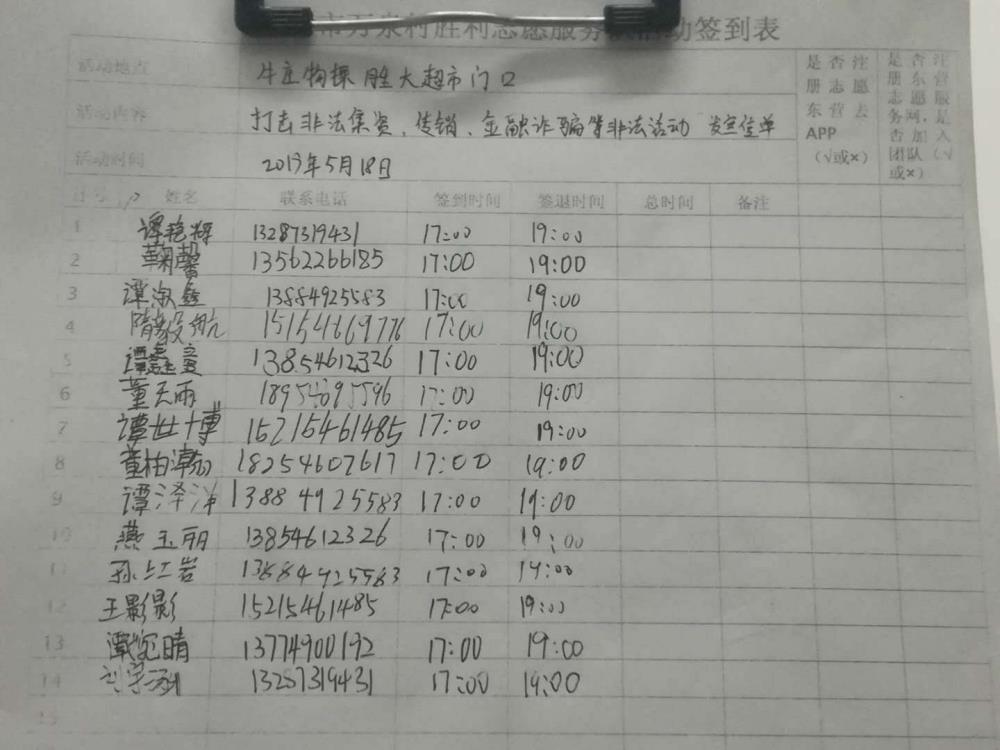 市万泉利胜利志愿服务 活动签到表
活动地点 牛庄物探胜大超市门口
活动内容 打击非法集资、传销、金融诈骗等非法活动 发宣传单
活动时间 2019年5月18日
是否注册志愿东营去APP（√或×）
是否注册东营志愿服务网，是否加入团队（√或×）
序号 姓名 联系电话 签到时间 签退时间 总时间 备注
1 谭艳辉 13287319431 17:00 19:00
2 鞠馨 13562266185 17:00 19:00
3 谭淑鑫 13884925583 17:00 19:00
4 隋毅航 15154669776 17:00 19:00
5 谭鑫童 13854612326 17:00 19:00
6 董天雨 18954695596 17:00 19:00
7 谭世博 15215461485 17:00 19:00
8 董柏瀚 18254607617 17:00 19:00
9 谭泽洋 13884925583 17:00 19:00
10 燕玉丽 13854612326 17:00 19:00
11 孙红岩 13884925583 17:00 19:00
12 王影影 15215461485 17:00 19:00
13 谭宛晴 13774900192 17:00 19:00
14 刘宇涵 13287319431 17:00 19:00
15